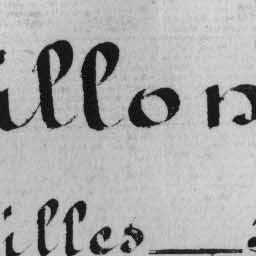 illon
illes